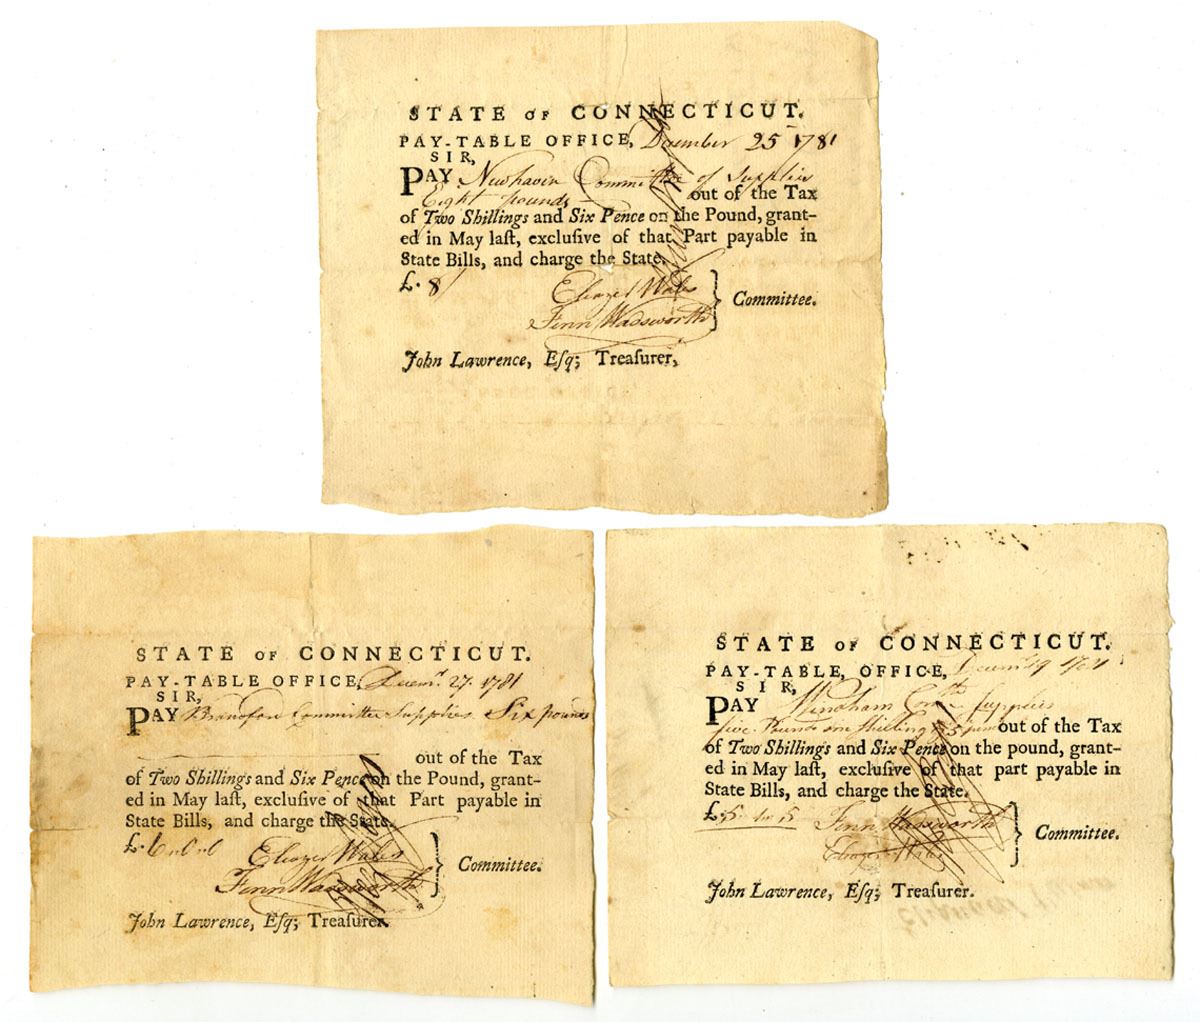 STATE OF CONNECTICUT.
PAY-TABLE OFFICE, December 25 1781
SIR,
PAY Newhaven Committee of Supplies
Eight pounds out of the Tax
of Two Shillings and Six Pence on the Pound, grant-
ed in May laſt, excluſive of that Part payable in
State Bills, and charge the State.
£. 8/
Eleazer Wales
Fenn Wadsworth } Committee.
John Lawrence, Eſq; Treaſurer,
STATE OF CONNECTICUT.
PAY-TABLE OFFICE, Decemr. 27. 1781
SIR,
PAY Branford Committee Supplies Six pounds
out of the Tax
of Two Shillings and Six Pence on the Pound, grant-
ed in May laſt, excluſive of that Part payable in
State Bills, and charge the State.
£.
Eleazer Wales
Fenn Wadsworth } Committee.
John Lawrence, Eſq; Treaſurer.
STATE OF CONNECTICUT.
PAY-TABLE, OFFICE, 19
SIR,
PAY Windham Supplies
five Pounds one Shilling out of the Tax
of Two Shillings and Six Pence on the pound, grant-
ed in May laſt, excluſive of that part payable in
State Bills, and charge the State.
£. Fenn Wadsworth
Eleazer Wales } Committee.
John Lawrence, Eſq; Treaſurer.